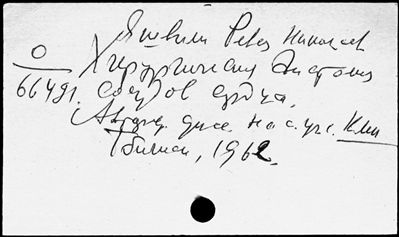 Яшвили Реваз Николаев
О Хирургическая Анатомия
66491. сосудов сердца.
Автореф. дисс. на с. уч. с. К.м.н
Тбилиси, 1962.